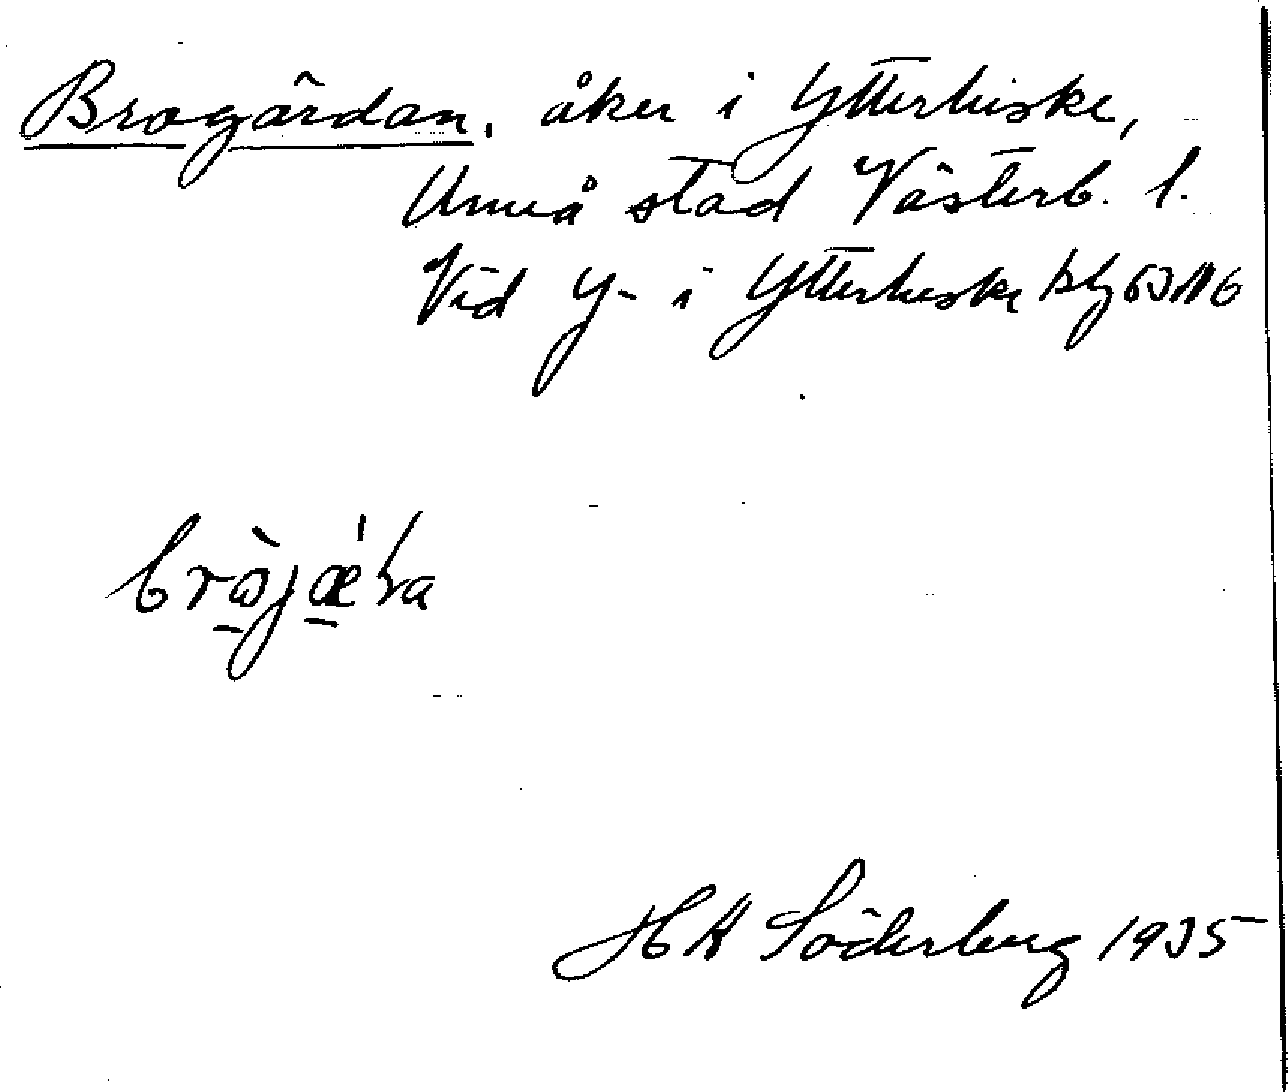 Brogärdan, åker i Ytterhiske,
Umeå stad Västerb. l.
Vid y- i Ytterhiske
H Söderberg 1935